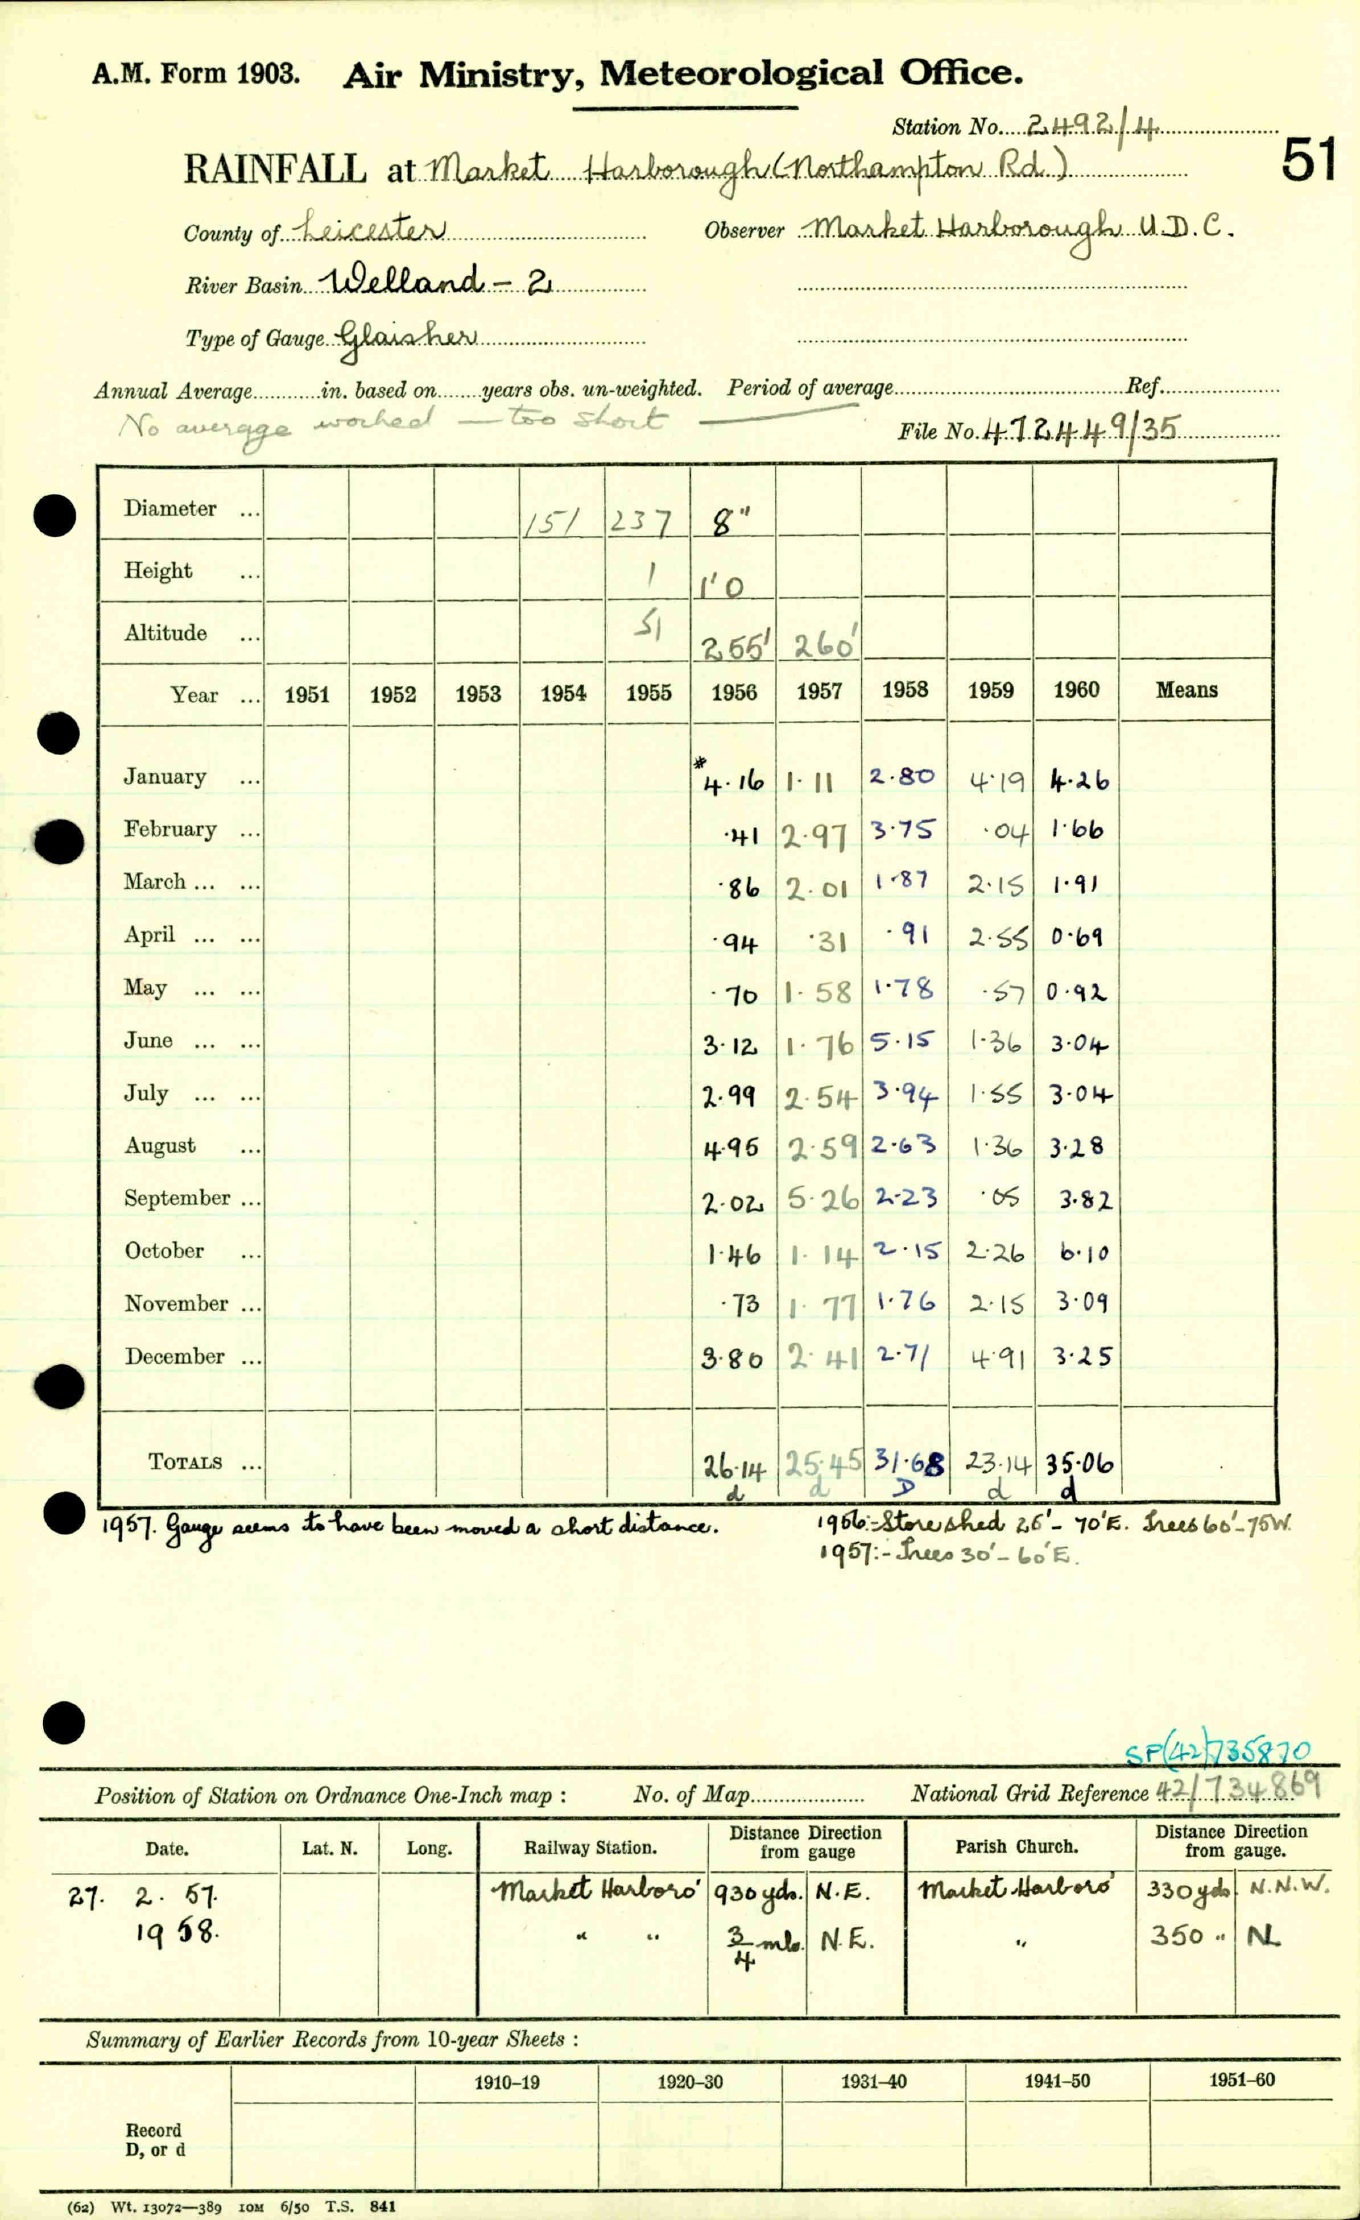 A.M. Form 1903. Air Ministry, Meteorological Office.
Station No. 2492/4
51
RAINFALL at Market Harborough (Northampton Rd.)
County of Leicester Observer Market Harborough U.D.C.
River Basin Welland - 2
Type of Gauge Glaisher
Annual Average............in. based on........years obs. un-weighted. Period of average............Ref............
No average worked — too short
File No. 472449/35
Diameter ... 151 237 8"
Height ... 1 1'0
Altitude ... 51 255' 260'
Year ... 1951 1952 1953 1954 1955 1956 1957 1958 1959 1960 Means
January ... *4.16 1.11 2.80 4.19 4.26
February ... .41 2.97 3.75 .04 1.66
March ... ... .86 2.01 1.87 2.15 1.91
April ... ... .94 .31 .91 2.55 0.69
May ... ... .70 1.58 1.78 .57 0.92
June ... ... 3.12 1.76 5.15 1.36 3.04
July ... ... 2.99 2.54 3.94 1.55 3.04
August ... 4.95 2.59 2.63 1.36 3.28
September ... 2.02 5.26 2.23 .05 3.82
October ... 1.46 1.14 2.15 2.26 6.10
November ... .73 1.77 1.76 2.15 3.09
December ... 3.80 2.41 2.71 4.91 3.25
TOTALS ... 26.14 25.45 31.68 23.14 35.06
d d D d d
1957. Gauge seems to have been moved a short distance. 1956:- Store shed 25' - 70'E. Trees 60' - 75W.
1957:- Trees 30' - 60'E.
SP(42)735870
Position of Station on Ordnance One-Inch map : No. of Map............ National Grid Reference 42/734869
Date. Lat. N. Long. Railway Station. Distance from Direction gauge Parish Church. Distance from Direction gauge.
27. 2. 57. Market Harboro' 930 yds. N.E. Market Harboro' 330 yds N.N.W.
1958. " " 3/4 mls. N.E. " 350 "
Summary of Earlier Records from 10-year Sheets :
1910–19 1920–30 1931–40 1941–50 1951–60
Record
D, or d
(62) Wt. 13072—389 10M 6/50 T.S. 841